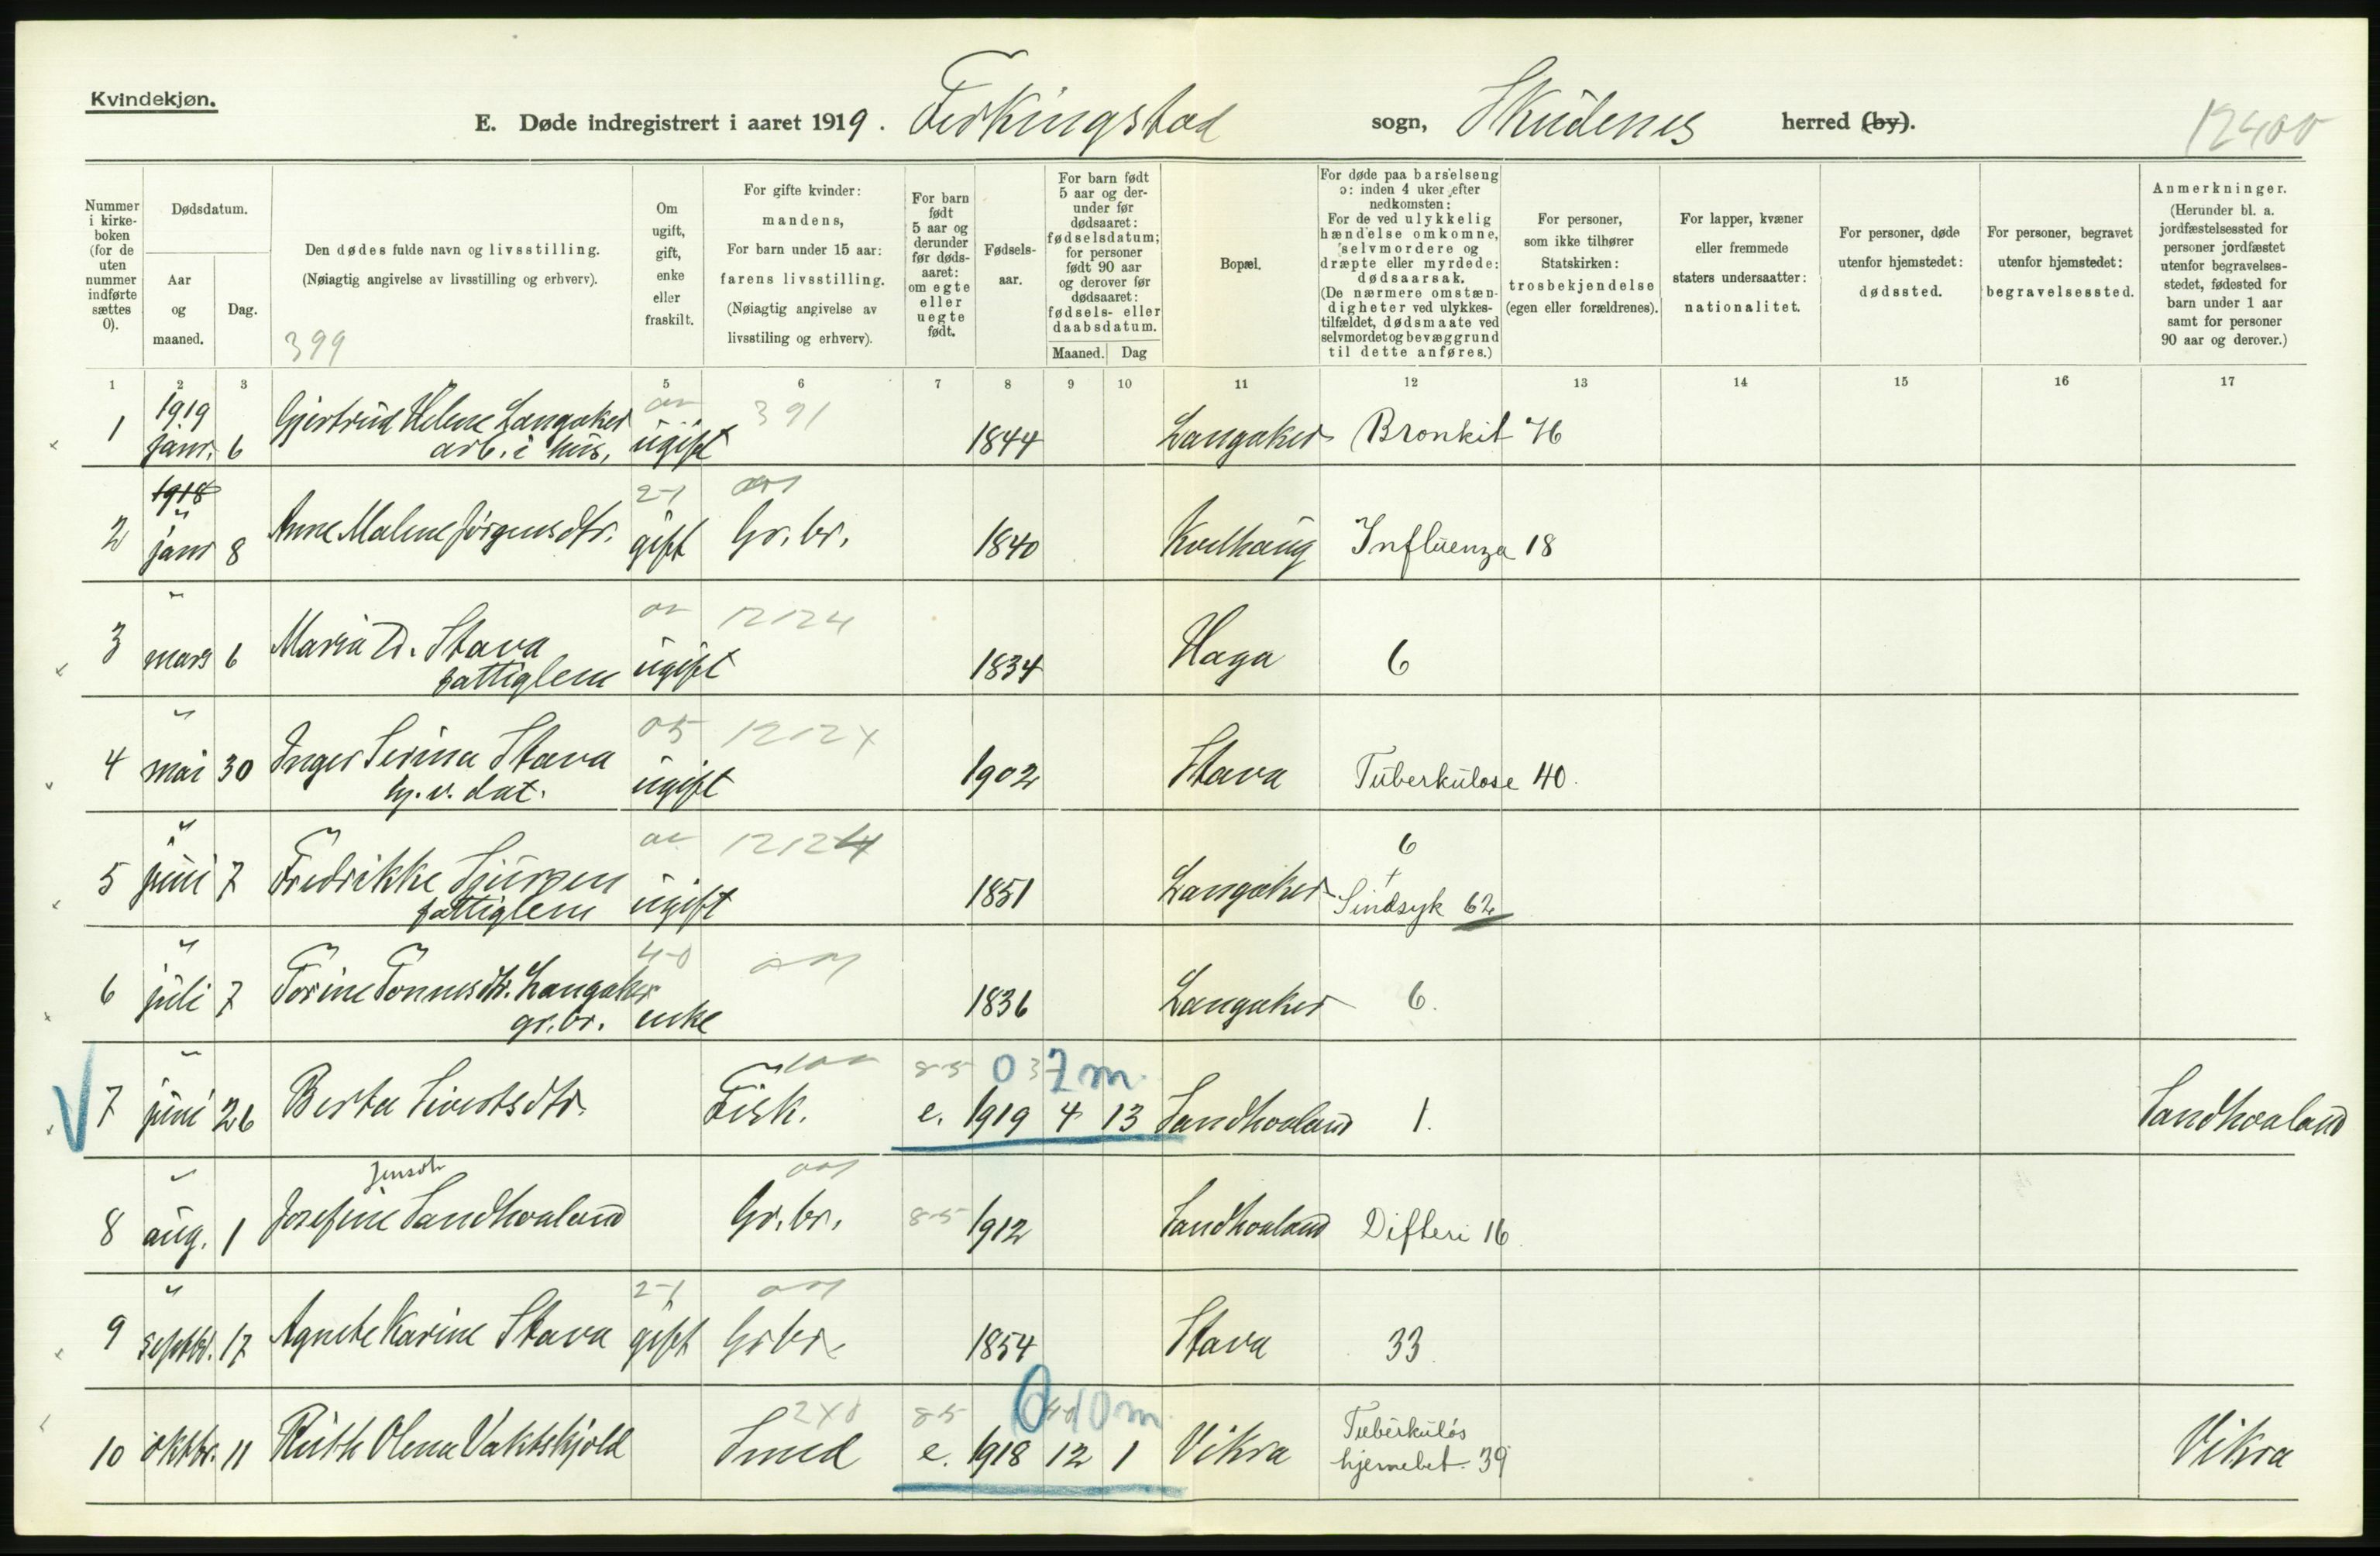 Kvindekjøn.
E. Døde indregistrert i aaret 1919. Ferkingstad sogn, Skudenes herred (by).
12400
Nummer i kirke-boken (for de uten nummer indførte sættes 0).
Dødsdatum.
Aar og maaned.
Dag.
Den dødes fulde navn og livsstilling.
(Nøiagtig angivelse av livsstilling og erhverv).
399
Om ugift, gift, enke eller fraskilt.
For gifte kvinder: mandens,
For barn under 15 aar: farens livsstilling.
(Nøiagtig angivelse av livsstiling og erhverv).
For barn født 5 aar og derunder før døds-aaret: om egte eller uegte født.
Fødsels-aar.
For barn født 5 aar og der-under før dødsaaret: fødselsdatum; for personer født 90 aar og derover før dødsaaret: fødsels- eller daabsdatum.
Maaned. Dag
Bopæl.
For døde paa barselseng ɔ: inden 4 uker efter nedkomsten:
For de ved ulykkelig hændelse omkomne, selvmordere og dræpte eller myrdede: dødsaarsak.
(De nærmere omstæn-digheter ved ulykkes-tilfældet, dødsmaate ved selvmordet og bevæggrund til dette anføres.)
For personer, som ikke tilhører Statskirken: trosbekjendelse (egen eller forældrenes).
For lapper, kvæner eller fremmede staters undersaatter: nationalitet.
For personer, døde utenfor hjemstedet: dødssted.
For personer, begravet utenfor hjemstedet: begravelsessted.
Anmerkninger.
(Herunder bl. a. jordfæstelsessted for personer jordfæstet utenfor begravelses-stedet, fødested for barn under 1 aar samt for personer 90 aar og derover.)
1 2 3 5 6 7 8 9 10 11 12 13 14 15 16 17
1919 391
1 janr. 6 Gjertrud Helene Langaker ugift 1844 Langaker Bronkit 46
arb. i hus,
1918 2-1
2 " janr 8 Anne Malene Jörgensdtr. gift Gr. br. 1840 Kvelhaug Influenza 18
" 12124
3 mars 6 Maria D. Stava ugift 1834 Haga 6
fattiglem
" 05 1212x
4 mai 30 Inger Serina Stava ugift 1902 Stava Tuberkulose 40.
hj. v. dat.
" 12124 6
5 juni 7 Fredrikke Sjursen ugift 1851 Langaker + Sindsyk 62
fattiglem
" 4-0
6 juli 7 Torine Tonnesdtr. Langaker enke 1836 Langaker 6.
gr. br.
" 85 0 3 7 m.
7 juni 26 Berta Sivertsdtr. Fisk. e. 1919 4 13 Sandhvaland 1. Sandhvaland
" Jensdtr
8 aug. 1 Josefine Sandhvaland Gr. br. 85 1912 Sandhvaland Difteri 16.
" 2-1
9 septbr. 17 Agnete Karine Stava gift Gr br. 1854 Stava 33
2x0 85 0 10 m
10 oktbr. 11 Ruth Olena Vaktskjold Smed e. 1918 12 1 Vikra Tuberkuløs hjernebet. 39 Vikra